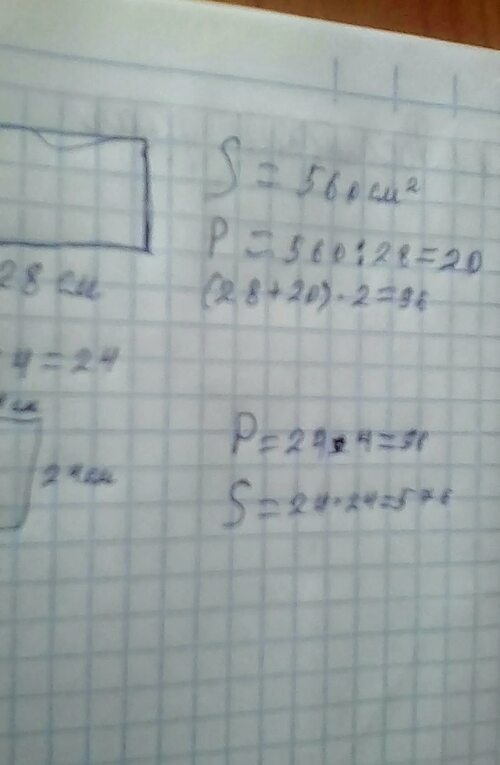 S = 560 см²
P = 560 : 28 = 20
28 см
(28 + 20) · 2 = 96
4 = 24
см
24 см
P = 24 · 4 = 96
S = 24 · 24 = 576